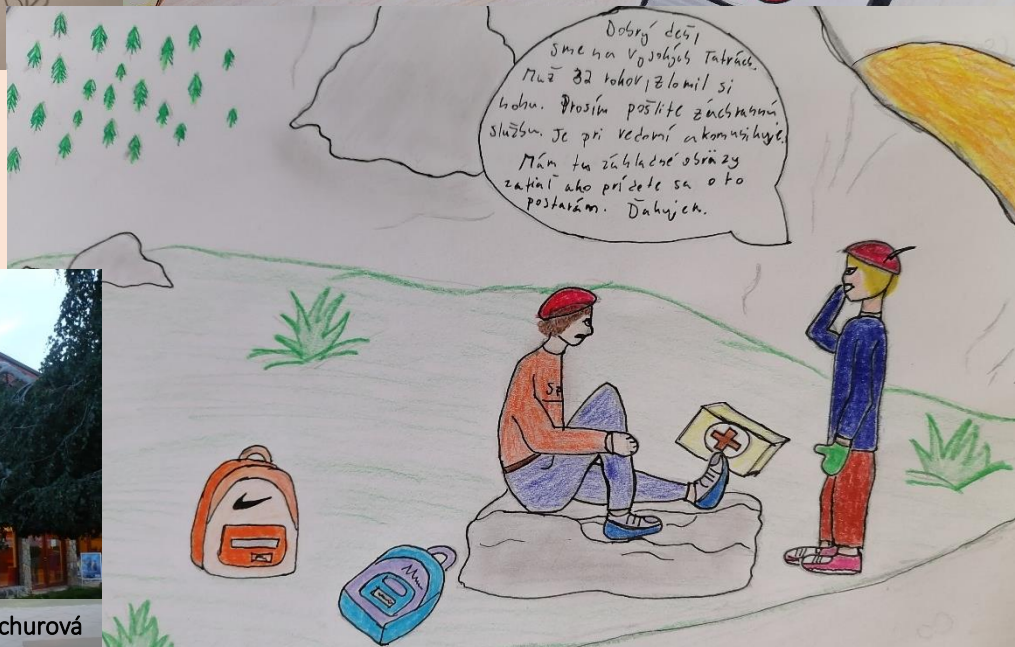 Dobrý deň,
sme na Vysokých Tatrách.
Muž 32 rokov, zlomil si
nohu. Prosím pošlite záchrannú
službu. Je pri vedomí a komunikuje.
Mám tu základné obväzy
zatiaľ ako prídete sa o to
postarám. Ďakujem.
churová